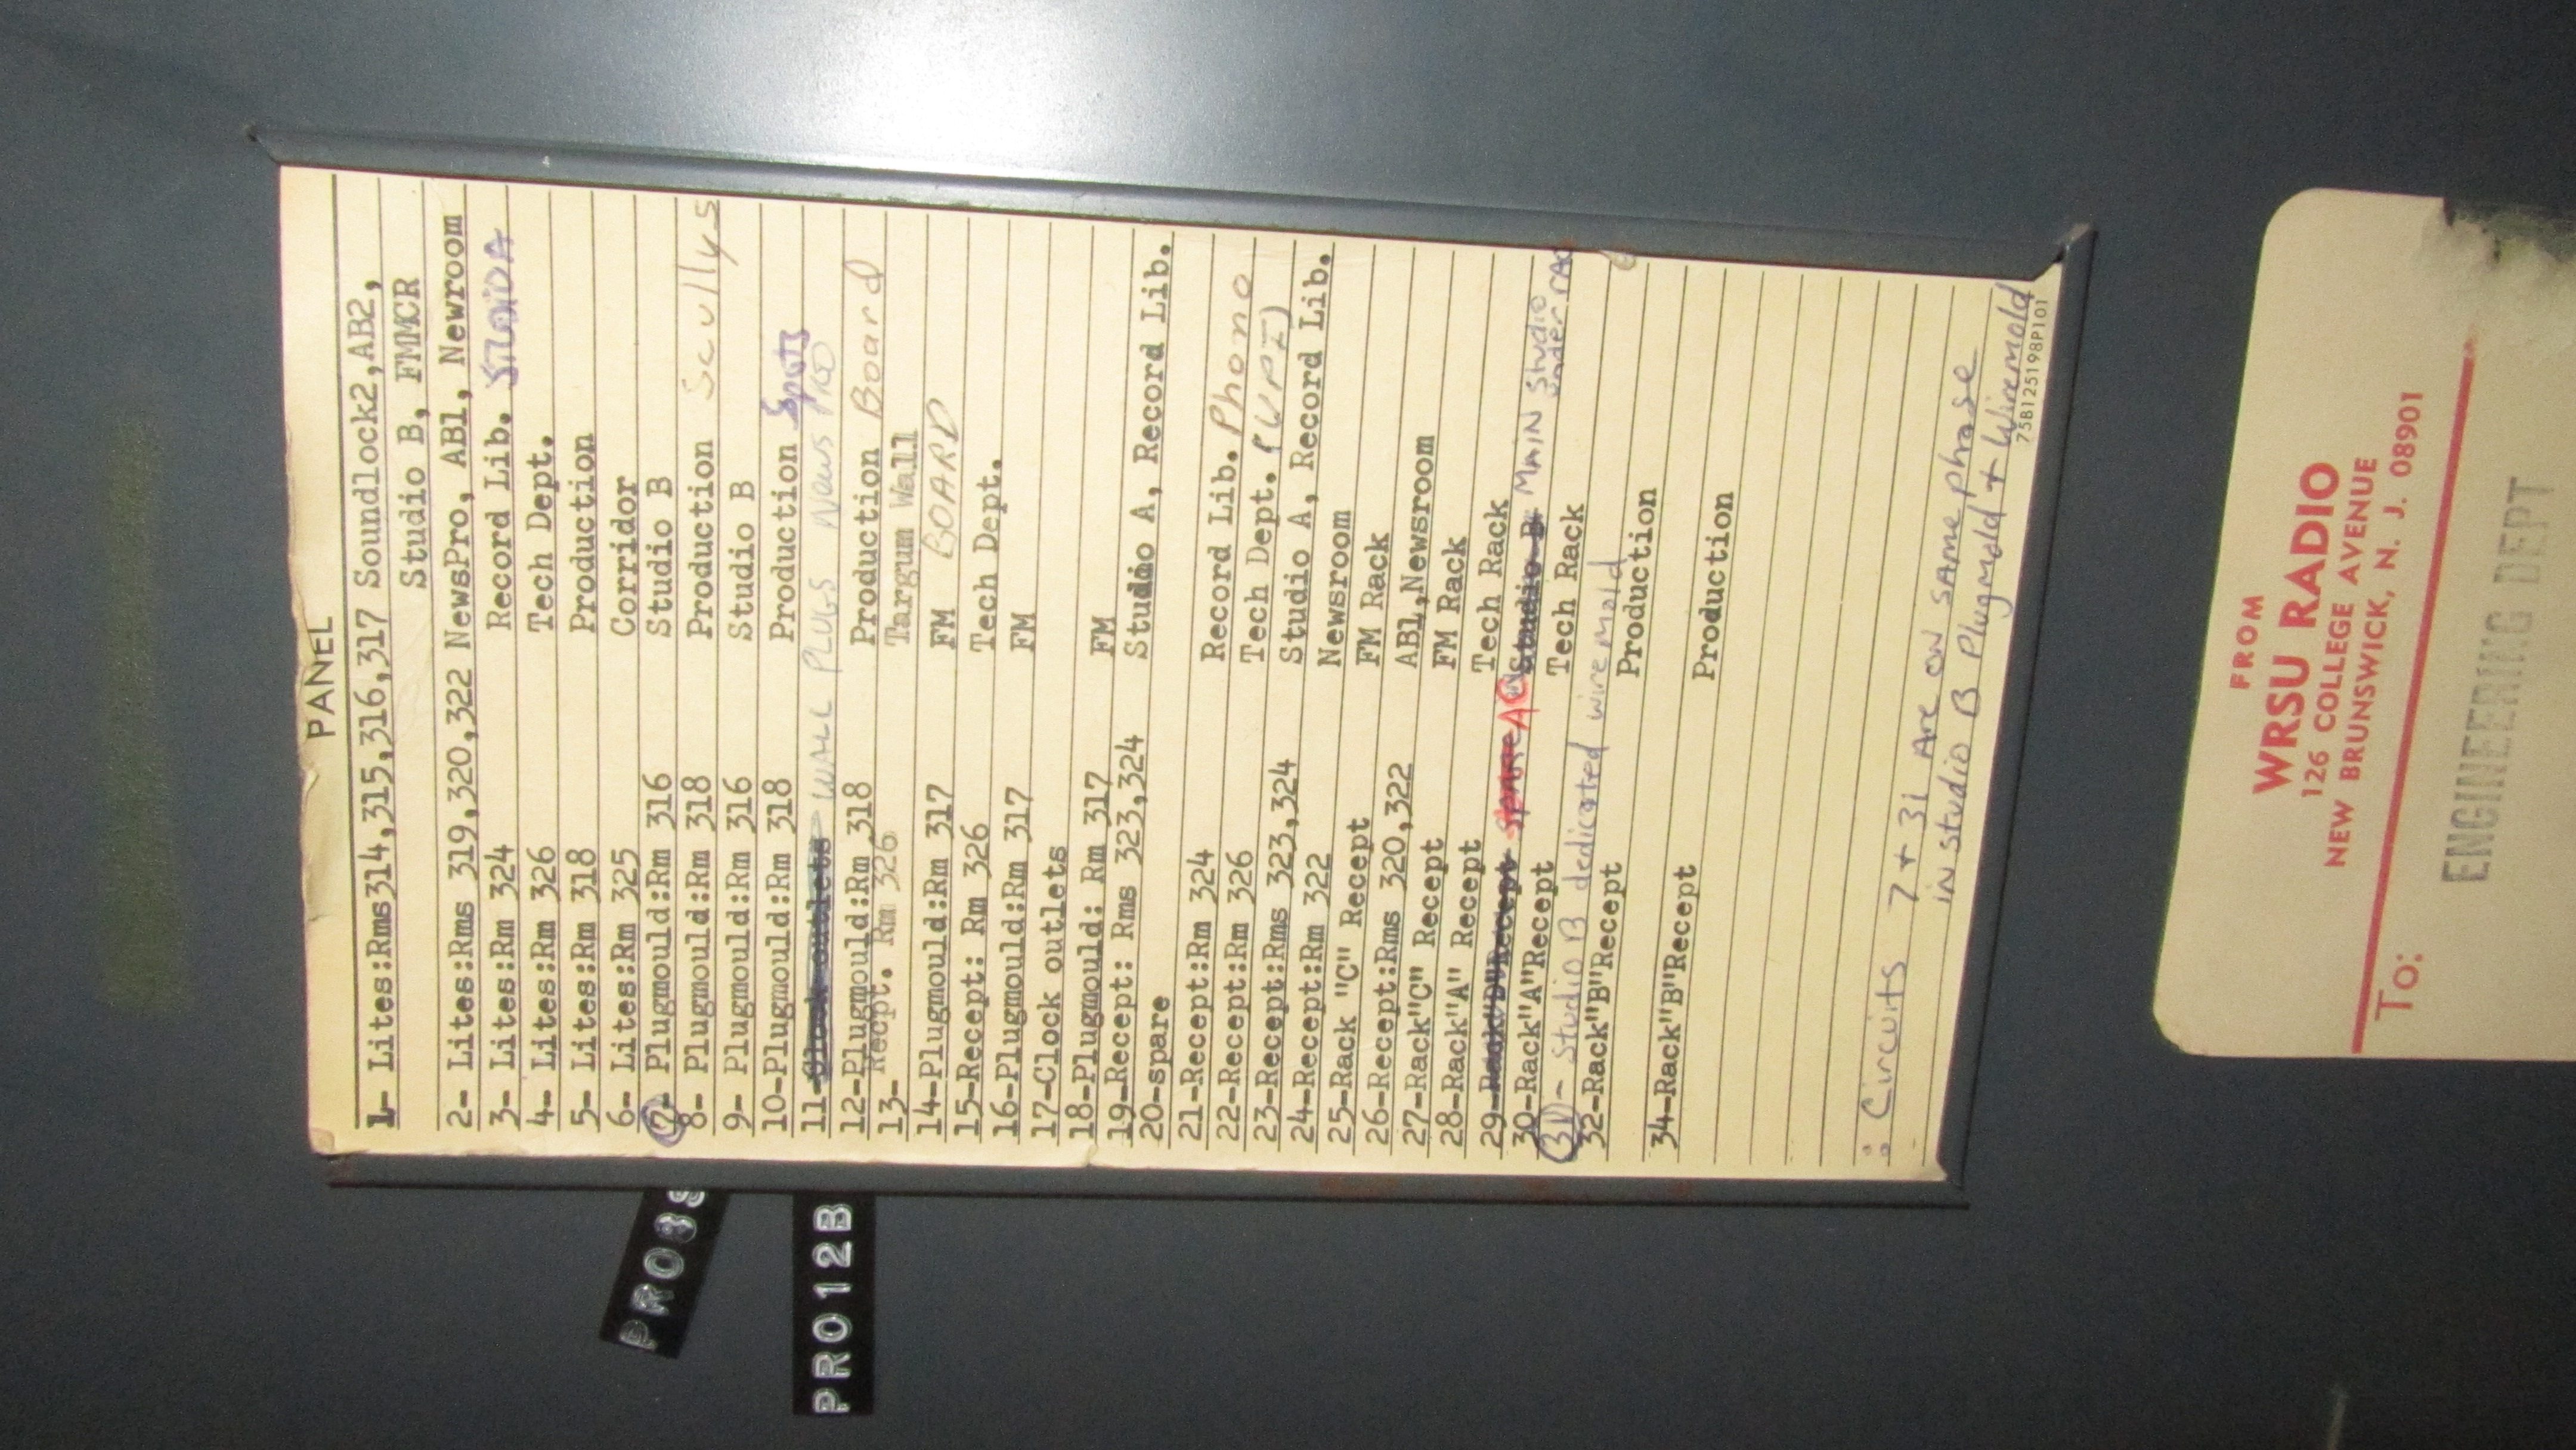 PANEL
1- Lites:Rms314,315,316,317 Soundlock2,AB2,
Studio B, FMMCR
2- Lites:Rms 319,320,322 NewsPro, AB1, Newroom
3- Lites:Rm 324 Record Lib. STUDIOA
4- Lites:Rm 326 Tech Dept.
5- Lites:Rm 318 Production
6- Lites:Rm 325 Corridor
7- Plugmould:Rm 316 Studio B
8- Plugmould:Rm 318 Production Scullys
9- Plugmould:Rm 316 Studio B
10-Plugmould:Rm 318 Production Spots
11-Clock outlets WALL PLUGS News PRO
12-Plugmould:Rm 318 Production Board
13- Recpt. Rm 326 Targum Wall
14-Plugmould:Rm 317 FM BOARD
15-Recept: Rm 326 Tech Dept.
16-Plugmould:Rm 317 FM
17-Clock outlets
18-Plugmould: Rm 317 FM
19-Recept: Rms 323,324 Studio A, Record Lib.
20-spare
21-Recept:Rm 324 Record Lib. Phono
22-Recept:Rm 326 Tech Dept. (UPI)
23-Recept:Rms 323,324 Studio A, Record Lib.
24-Recept:Rm 322 Newsroom
25-Rack "C" Recept FM Rack
26-Recept:Rms 320,322 AB1,Newsroom
27-Rack"C" Recept FM Rack
28-Rack"A" Recept Tech Rack
29-Rack"D"Recept Studio B MAIN Studio
under
30-Rack"A"Recept Tech Rack
31 - Studio B dedicated wiremold
32-Rack"B"Recept Production
34-Rack"B"Recept Production
Circuits 7 + 31 Are on SAME phase
in Studio B Plugmold + Wiremold
75B125198P101
PRO8S
PRO12B
FROM
WRSU RADIO
126 COLLEGE AVENUE
NEW BRUNSWICK, N. J. 08901
To:
ENGINEERING DEPT